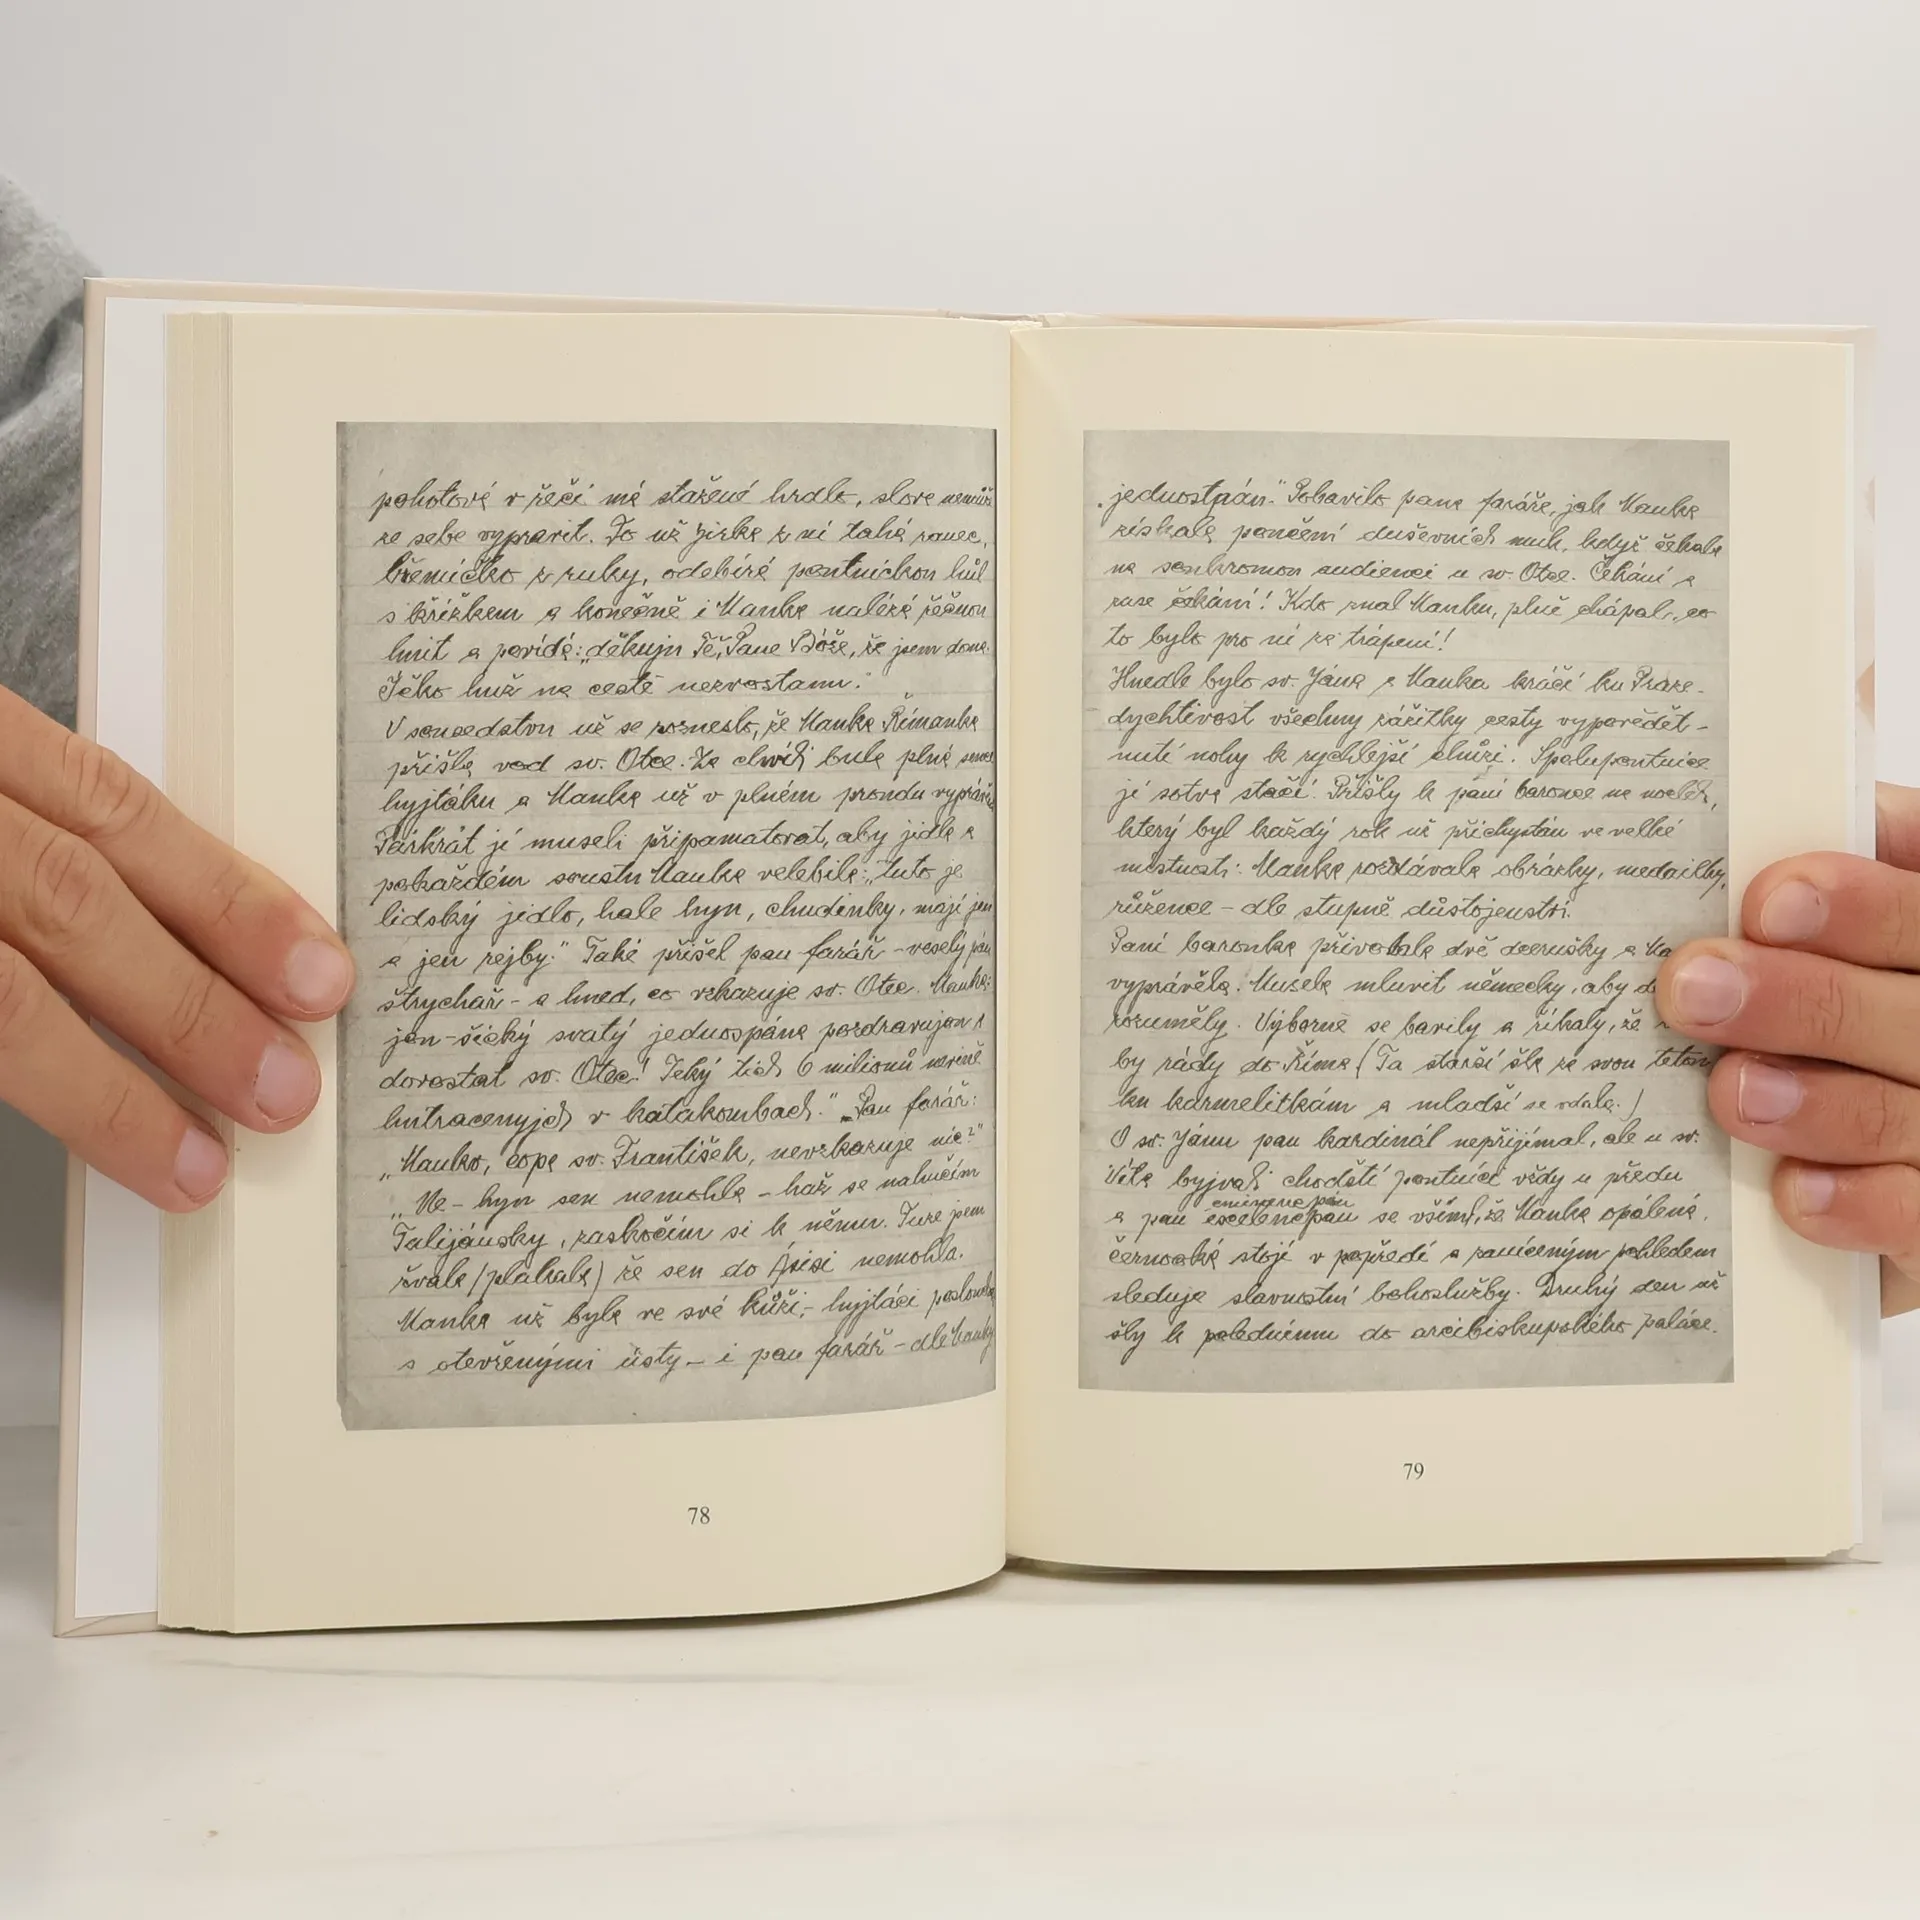 pohotová v řeči má stažené hrdlo, slova nemůže
ze sebe vypravit. To už Jirka z ní tahá ranec,
břemíčko z ruky, odebírá poutnickou hůl
s křížkem a konečně i Hanka nalézá řečnou
hnit a povídá: „děkuju Tě, Pane Bóže, že jsem doma.
Téko huž na cestě nezvostanu."
V sousedstvu už se rozneslo, že Hanka Římanka
přišla vod sv. Otce. Za chvíli bula plná
hyjtáku a Hanka už v plném proudu
Párkrát jí museli připamatovat, aby jidla a
pokaždém soustu Hanka velebila: „tuto je
lidský jidlo, hale hyn, chudinky, mají jen
a jen rejby." Také přišel pan farář – veselý pán
štrychař – a hned, co vzkazuje sv. Otec. Hanka:
jen – šický svatý jednospána pozdravujou a
dorostat sv. Otec! Teký tich 6 milionů nevině
hutracenyjch v katakombach." „Pan farář:
„Hanko, copa sv. František, nevzkazuje nic?"
„Ne – hyn sem nemohla – haž se nahučím
Talijánsky, zaskočím si k němu. Tuze jsem
žvala (plakala) že sem do Asisi nemohla.
Hanka už byla ve své kůži, – hyjtáci
s otevřenými ústy – i pan farář – dle Hanky
78
jednostpán." Pobavilo pana faráře, jak Hanka
získala poučení duševních muk, když čekala
na soukromou audienci u sv. Otce. Čekání a
zase čekání! Kdo znal Hanku, plně chápal, co
to bylo pro ni za trápení!
Hnedle bylo sv. Jána a Hanka kráčí ku Praze –
dychtivost všechny zážitky cesty vypovědět –
nutí nohy k rychlejší chůzi. Spolupoutnice
jí sotva stačí. Přišly k paní baronce na nocleh,
který byl každý rok už přichystán ve velké
místnosti: Hanka rozdávala obrázky, medailky,
růžence – dle stupně důstojenství.
Paní baronka přivolala dvě dcerušky a Ha
vyprávěla. Musela mluvit německy, aby d
rozuměly. Výborně se bavily a říkaly, že
by rády do Říma (Ta starší šla za svou tetou
ku karmelitkám a mladší se vdala.)
O sv. Jánu pan kardinál nepřijímal, ale u sv.
Víta byjvali chodští poutníci vždy u předu
eminenc pán
a pan excelencpan se všiml, že Hanka opálená,
černooká stojí v popředí a zaníceným pohledem
sleduje slavnostní bohoslužby. Druhý den už
šly k polednímu do arcibiskupského paláce.
79